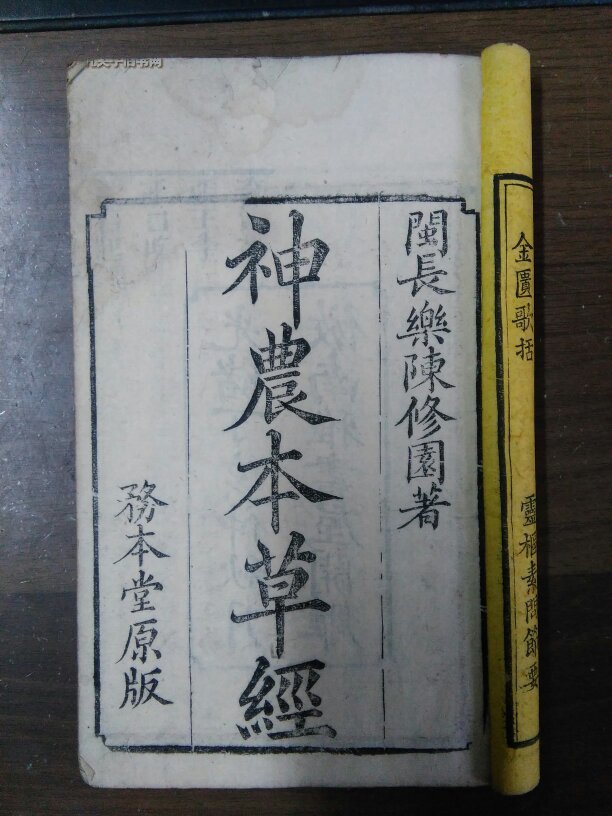 金匱歌括
靈樞素問節要
閩長樂陳修園著
神農本草經
務本堂原版